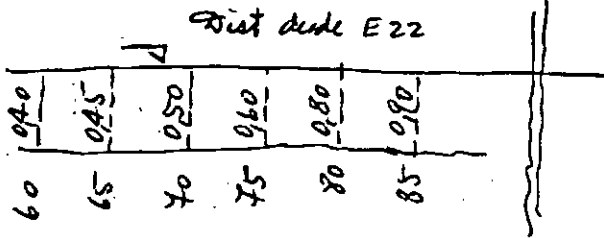 Dist desde E22
0,40 0,45 0,50 0,60 0,80 0,90
60 65 70 75 80 85